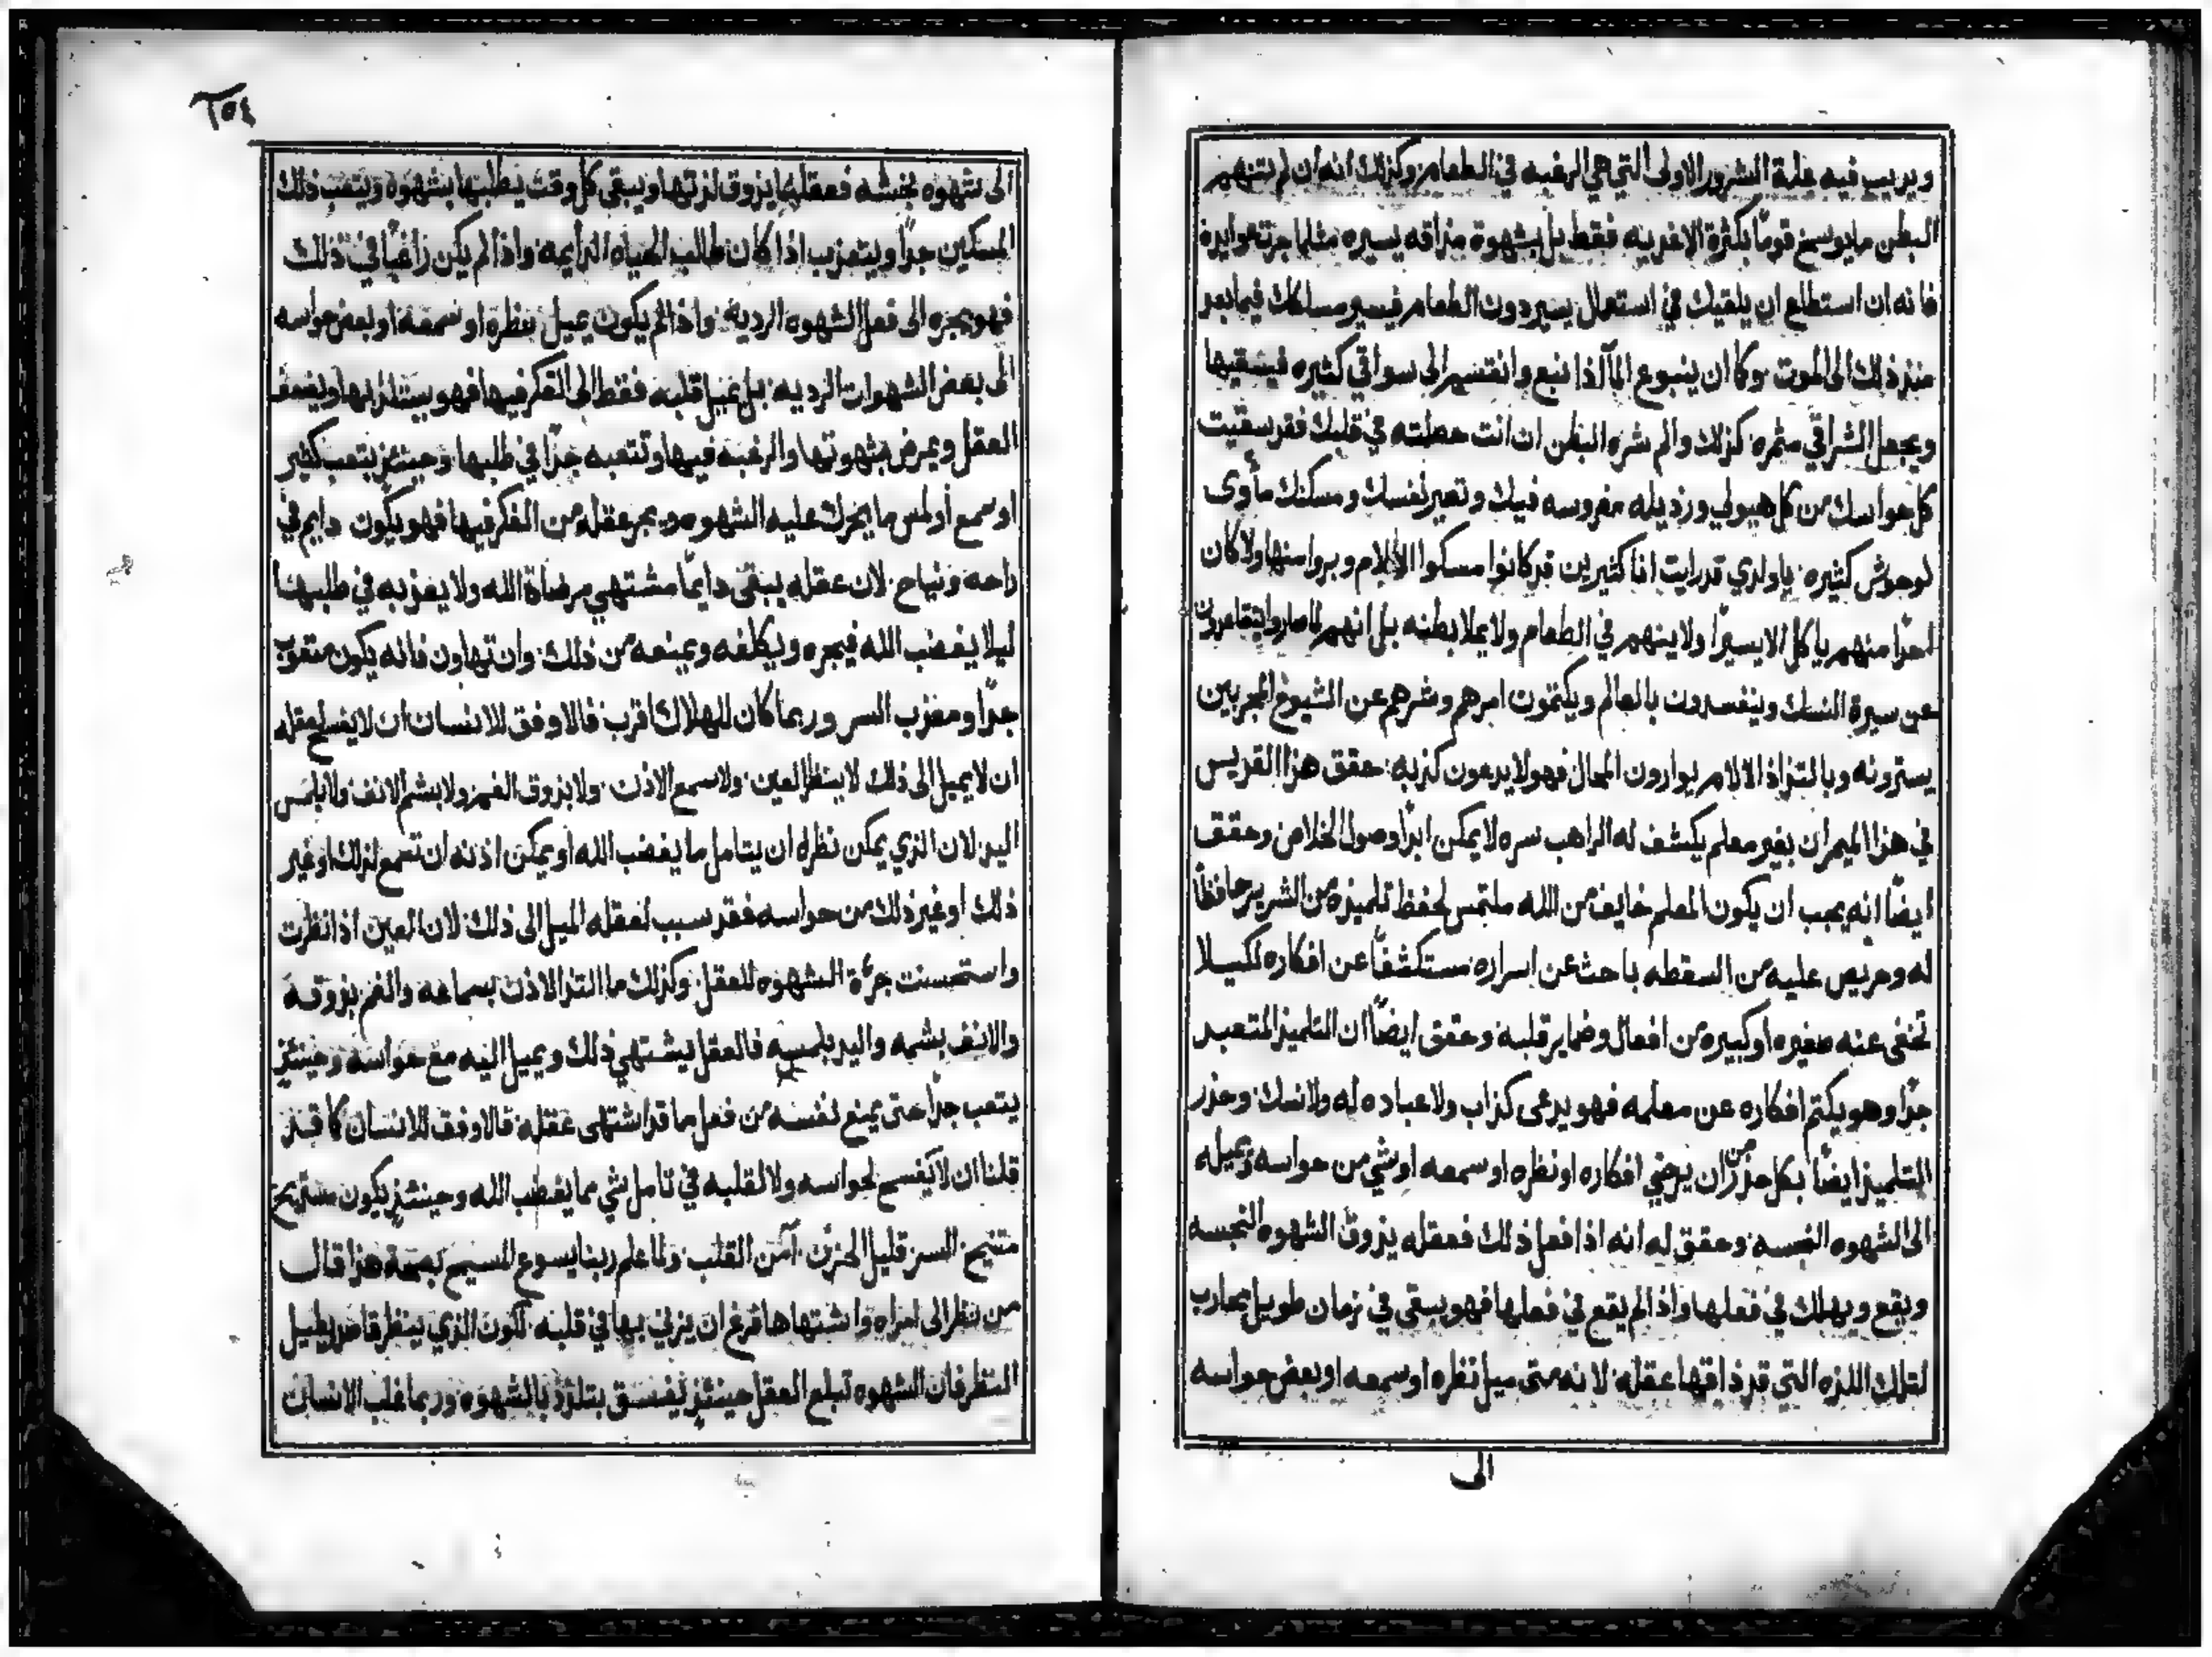 ويريب فيه علة الشرور الاولى التي هي الرغبه في الطعام وكذلك انه ان لم يتنهم
البطن مايوسخ قوماً بكثرة الاغديه فقط بل بشهوة مذاقه يسيره مثلما جرت عوايده
فانه ان استطاع ان يلقيك في استعمال يسير دون الطعام فيسير مسلكك فيما بعد
منذ ذلك الى الموت وكما ان ينبوع المآ اذا نبع وانقسم الى سواقي كثيره فيسقيها
ويجعل الشراقي مثمره كذلك والم شره البطن ان انت حصلته في قلبك فقد سقيت
كل حواسك من كل هيولي ورذيله مغروسه فيك وتصير نفسك ومسكنك مأوى
لوحوش كثيره ياولدي قد رايت انا كثيرين قد كانوا مسكوا الالام وبروا منها ولا كان
احداً منهم ياكل الا يسيراً ولا ينهم في الطعام ولا يملا بطنه بل انهم لما صاروا يتقاعدون
عن سيرة النسك وينفسدون بالعالم ويكتمون امرهم وشرهم عن الشيوخ المجربين
يسترونه وبالتذاذ الالام يوارون المحال فهولا يدعون كذبه حقق هذا القديس
في هذا الميمر ان بغير معلم يكشف له الراهب سره لا يمكن ابداً وصول الخلاص وحقق
ايضاً انه يجب ان يكون المعلم خايف من الله ملتمس لحفظ تلميذه من الشرير حافظاً
له وحريص عليه من السقطه باحث عن اسراره مستكشفاً عن افكاره لكيلا
تخفى عنه صغيره او كبيره من افعال وضماير قلبه وحقق ايضاً ان التلميذ المتعبد
جداً وهو يكتم افكاره عن معلمه فهو يدعى كذاب ولا عباده له ولا نسك وحذر
التلميذ ايضاً بكل حذر من ان يرخي افكاره او نظره او سمعه او شي من حواسه ويميله
الى الشهوه النجسه وحقق له انه اذا فعل ذلك فعقله يذوق الشهوه النجسه
ويقع ويهلك في فعلها واذا لم يقع في فعلها فهو يبقى في زمان طويل يحارب
لتلك اللذه التي قد ذاقها عقله لانه متى ميل نظره او سمعه او بعض حواسه
الى
٢٥٤
الى شهوه نجسه فعقله يذوق لذتها ويبقى كل وقت يطلبها بشهوه ويتعب ذلك
المسكين جداً ويتعذب اذا كان طالب الحياه الدايمه واذا لم يكن راغباً في ذلك
فهو يجره الى فعل الشهوه الرديه واذا لم يكون يميل نظره او سمعه او بعض حواسه
الى بعض الشهوات الرديه بل يميل قلبه فقط الى الفكر فيها فهو يستلذ بها ويضعف
العقل ويمرض بشهوتها والرغبه فيها وتتعبه جداً في طلبها وحينئذ يتعب كثير
او سمع او لمس ما يحرك عليه الشهوه ويجر عقله من الفكر فيها فهو يكون دايم في
راحه ونياح لان عقله يبقى دايماً مشتهي مرضاة الله ولا يعذبه في طلبها
ليلا يغضب الله فيجره ويكلفه ويمنعه من ذلك وان تهاون فانه يكون متعوب
جداً ومعذب السر وربما كان للهلاك اقرب فالاوفق للانسان ان لا يفسح لعقله
ان لا يميل الى ذلك لا ينظر العين ولا سمع الاذن ولا بذوق الفم ولا بشم الانف ولا بلمس
اليد لان الذي يمكن نظره ان يتامل ما يغضب الله او يمكن اذنه ان تسمع لذلك او غير
ذلك او غير ذلك من حواسه فقد سبب لعقله الميل الى ذلك لان العين اذا نظرت
واستحسنت جرة الشهوه للعقل وكذلك ما التذ الاذن بسماعه والفم بذوقه
والانف بشمه واليد بلمسه فالعقل يشتهي ذلك ويميل اليه مع حواسه وحينئذ
يتعب جداً حتى يمنع نفسه من فعل ما قد اشتهى عقله فالاوفق للانسان كما قد
قلنا ان لا يفسح لحواسه ولا لقلبه في تامل شي مما يغضب الله وحينئذ يكون مستريح
متنيح السر قليل الحزن آمن القلب ولما علم ربنا يسوع المسيح بصحة هذا قال
من نظر الى امراه واشتهاها فرغ ان يزني بها في قلبه لكون الذي ينظر قاصد يطيل
النظر فان الشهوه تبلع العقل حينئذ يفسق بتلذذ بالشهوه وربما غلب الانسان